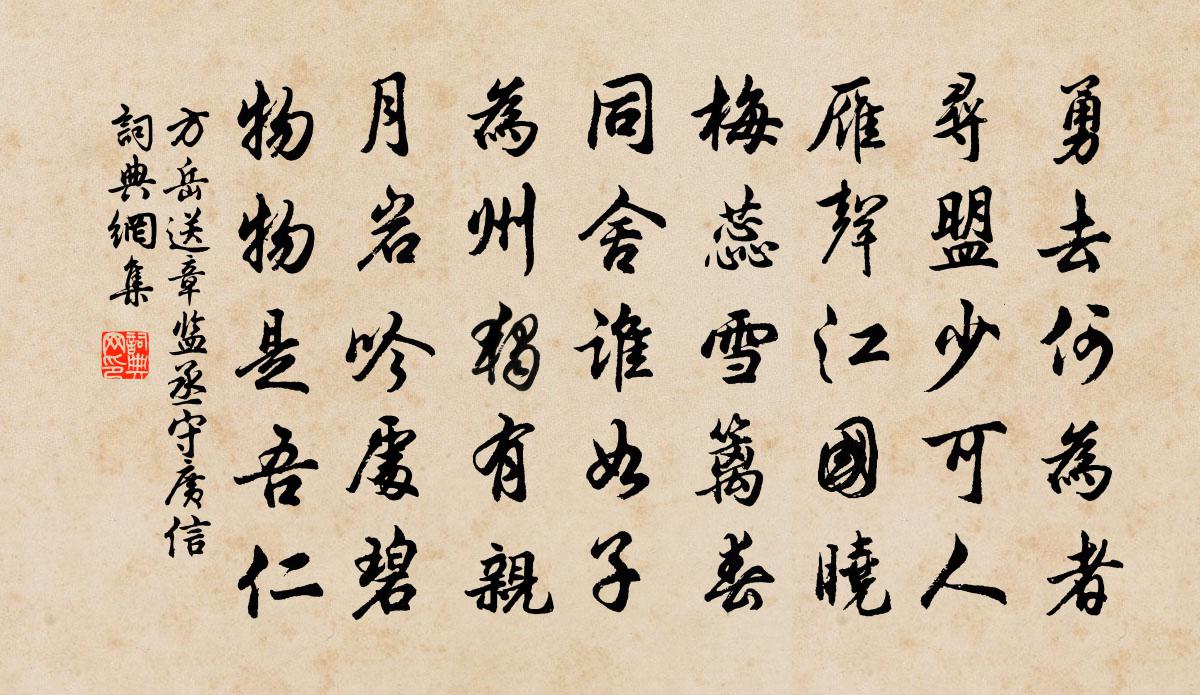 勇去何為者
尋盟少可人
雁聲江國曉
梅蕊雪籬春
同舍誰如子
為州獨有親
月岩吟處碧
物物是吾仁
方岳送章監丞守廣信
詞典網集
詞典網印